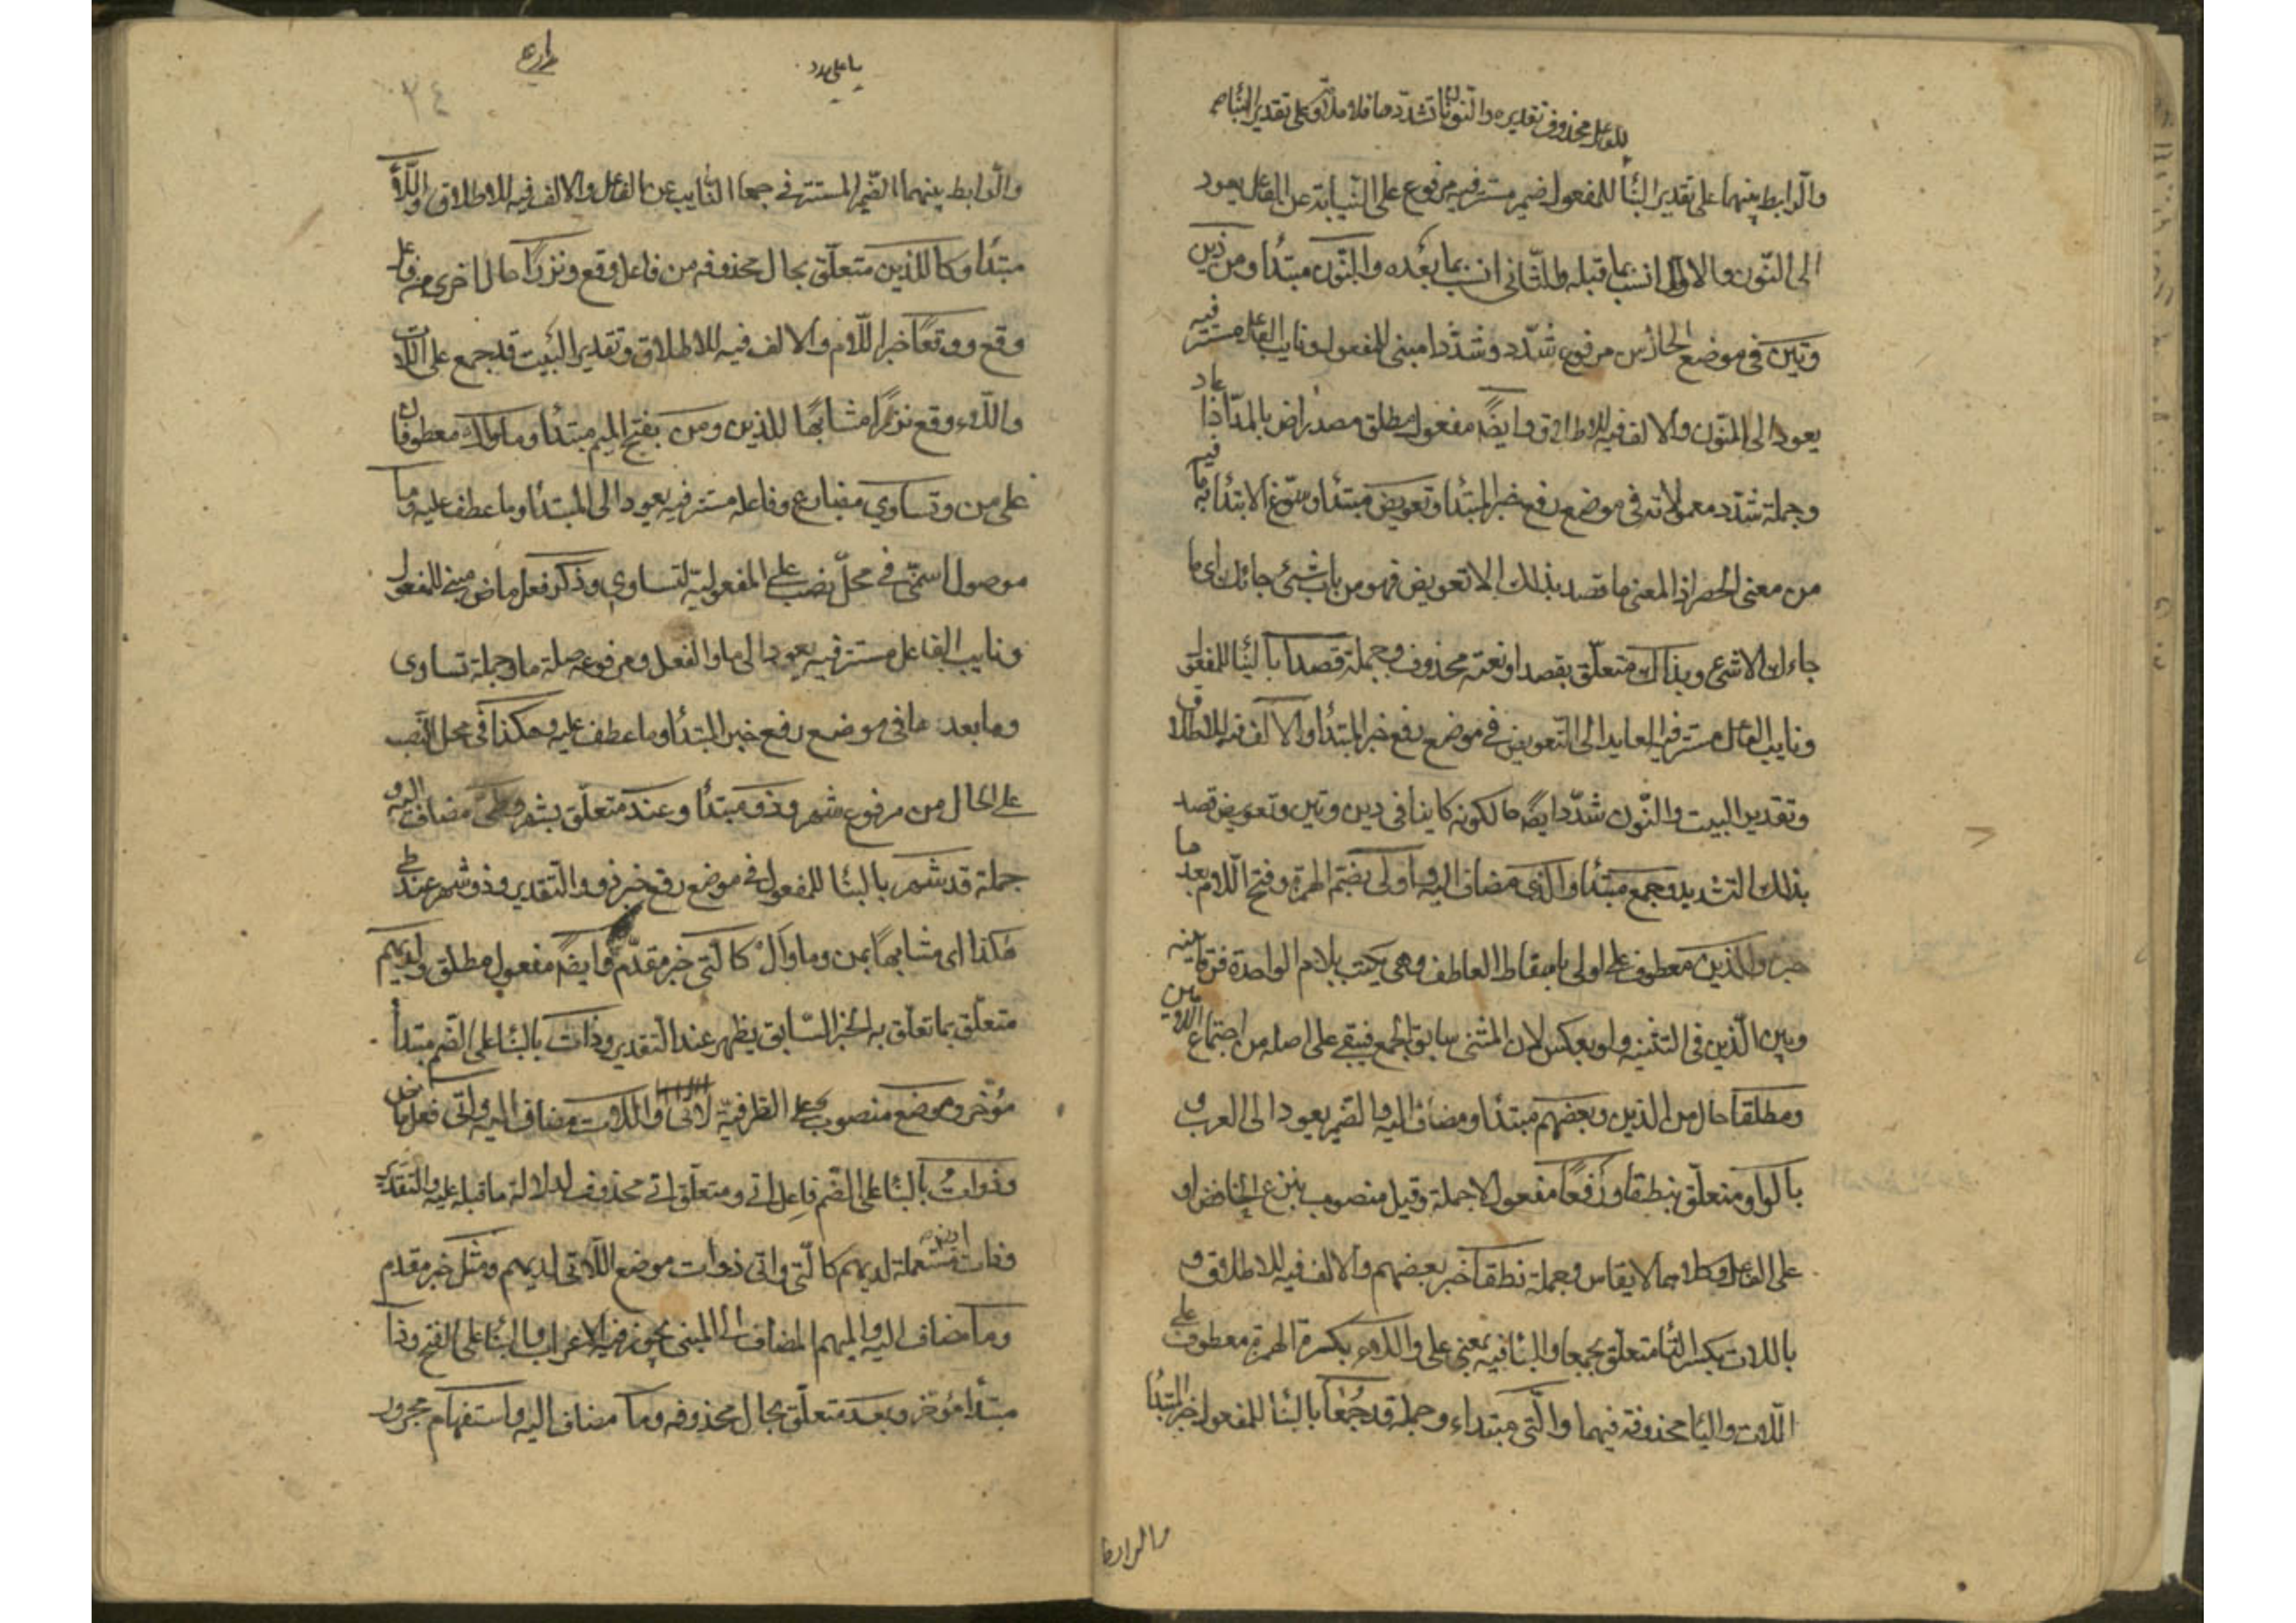 للفاعل محذوف تقديره والنون ان تشدد ما فلا ملامة وعلى تقدير البناء
والرابط بينهما على تقدير البناء للمفعول ضمير مستتر فيه مرفوع على النيابة عن الفاعل يعود
الى النون والاول انسب بما قبله والثاني انسب بما بعده والنون مبتدأ ومن ذين
وتين في موضع الحال من مرفوع شدد وشددا مبني للمفعول ونايب الفاعل مستتر فيه
يعود الى النون والالف فيه للاطلاق وايضًا مفعول مطلق مصدر اض بالمد اذا عاد
وجملة شدد ومعمولاته في موضع رفع خبر المبتدا وتعويض مبتدا وسوغ الابتدا به ما فيه
من معنى الحصر اذ المعنى ما قصد بذلك الا تعويض فهو من باب شئ جائك اى ما
جاءك الا شئ وبذاك متعلق بقصد او نعته محذوف وجملة قصدا بالبنا للمفعول
ونايب الفاعل مستتر فيه العايد الى التعويض في موضع رفع خبر المبتدأ والالف فيه للاطلاق
وتقدير البيت والنون شدد ايضًا حالكونه كاينا في ذين وتين وتعويض قصد
بذلك التشديد وجمع مبتدأ والذى مضاف اليه والأولى بضم الهمزة وفتح اللام بعدها
خبره والذين معطوف على اولى باسقاط العاطف وهى يكتب بلام الواحدة فرقا بينه
وبين الذين في التثنيه ولو يعكس لان المثنى سابق الجمع فيبقى على اصله من اجتماع اللامين
ومطلقا حال من الذين وبعضهم مبتدأ ومضاف اليه والضمير يعود الى العرب و
بالواو متعلق بنطقا ورفعًا مفعول لاجمله وقيل منصوب بنزع الخافض او
على الفاعل وكلاهما لا يقاس وجملة نطقا خبر بعضهم والالف فيه للاطلاق و
باللات بكسر التا متعلق بجمعا والبا فيه بمعنى على واللاء بكسرة الهمزة معطوف على
اللات واليا محذوفة فيهما والتى مبتداء وجملة قد جُمعا بالبنا للمفعول خبر المبتدا
والرابط
يا على مدد
٣٤
والرابط بينهما الضمير المستتر في جمعا النايب عن الفاعل والالف فيه للاطلاق واللاء
مبتدأ وكالذين متعلق بحال محذوفه من فاعل وقع ونزرًا حال اخرى من فاعل
وقع ووقعًا خبر اللام والالف فيه للاطلاق وتقدير البيت قد جمع على اللات
واللاء وقع نزرًا مشابهًا للذين ومن بفتح الميم مبتدأ وما وال معطوفان
على من وتساوي مضارع وفاعله مستتر فيه يعود الى المبتدأ وما عطف عليه وما
موصول اسمى في محل نصب على المفعولية لتساوي وذكر فعل ماض مبنى للمفعول
ونايب الفاعل مستتر فيه يعود الى ما والفعل ومرفوعه صلة ما وجملة تساوى
وما بعدها في موضع رفع خبر المبتدأ وما عطف عليه وهكذا في محل النصب
على الحال من مرفوع شهر وذو مبتدأ وعند متعلق بشهر وطى مضاف اليه و
جملة قد شهر بالبنا للمفعول في موضع رفع خبر ذو والتقدير وذو شهر عند طى
هكذا اى مشابهًا بمن وما وال كالتى خبر مقدم وايضًا مفعول مطلق ولديهم
متعلق بما تعلق به الخبر السابق يظهر عند التقدير وذات بالبنا على الضم مبتدأ
مؤخر وموضع منصوب على الظرفية لاتى واللات مضاف اليه واتى فعل ماض
وذوات بالبنا على الضم فاعل اتى ومتعلق اتى محذوف لدلالة ما قبله عليه والتقدير
وذات مستعملة لديهم كالتى واتى ذوات موضع اللاتى لديهم ومثل خبر مقدم
وما مضاف اليه والمبهم المضاف الى المبنى يجوز فيه الاعراب والبنا على الفتح وذا
مبتدأ مؤخر وبعد متعلق بحال محذوفه وما مضاف اليه واستفهام مجرور